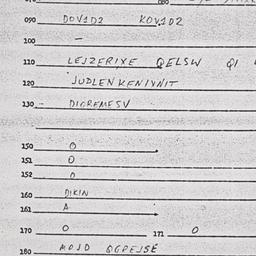 090 DOV1D2 KOV1D2
100 -
110 LEJZERIXE QELSW QI
120 JUDLENKENIVNIT
130 DIOREMESV
150 O
151 O
152 O
160 DIKIN
161 A
170 O 171 O
180 MOJD QGPEJSE